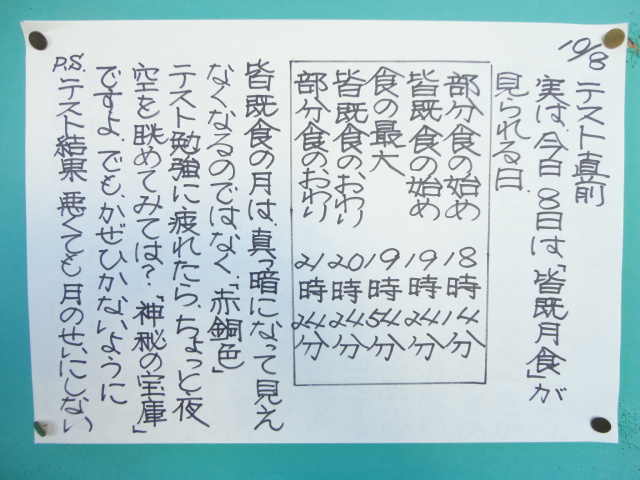 10/8 テスト直前
実は、今日8日は「皆既月食」が
見られる日。
部分食の始め 18時14分
皆既食の始め 19時24分
食の最大 19時54分
皆既食のおわり 20時24分
部分食のおわり 21時24分
皆既食の月は、真っ暗になって見え
なくなるのではなく、「赤銅色」
テスト勉強に疲れたら、ちょっと夜
空を眺めてみては?「神秘の宝庫」
ですよ。でも、かぜひかないように
P.S. テスト結果 悪くても月のせいにしない